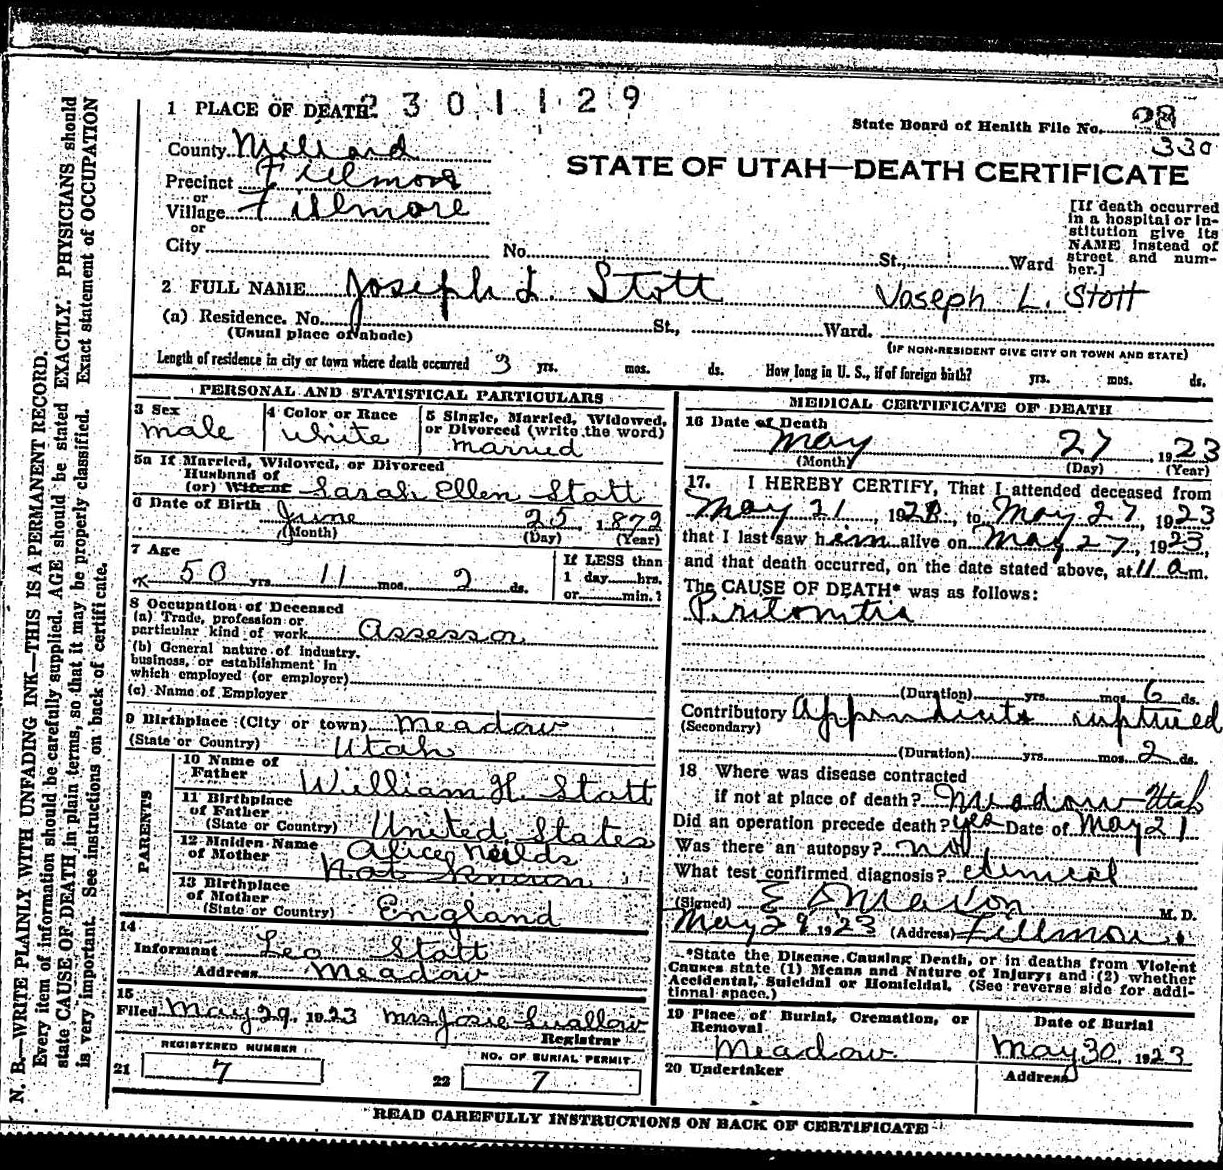 N. B.—WRITE PLAINLY WITH UNFADING INK—THIS IS A PERMANENT RECORD.
Every item of information should be carefully supplied. AGE should be stated EXACTLY. PHYSICIANS should
state CAUSE OF DEATH in plain terms, so that it may be properly classified. Exact statement of OCCUPATION
is very important. See instructions on back of certificate.
2301129
1 PLACE OF DEATH
State Board of Health File No. 28
330
County Millard
STATE OF UTAH—DEATH CERTIFICATE
Precinct Fillmore
or
Village Fillmore
or
City No. St., Ward
[If death occurred
in a hospital or in-
stitution give its
NAME instead of
street and num-
ber.]
2 FULL NAME Joseph L. Stott Joseph L. Stott
(a) Residence. No. St., Ward.
(Usual place of abode)
(IF NON-RESIDENT GIVE CITY OR TOWN AND STATE)
Length of residence in city or town where death occurred 3 yrs. mos. ds. How long in U. S., if of foreign birth? yrs. mos. ds.
PERSONAL AND STATISTICAL PARTICULARS
3 Sex
male
4 Color or Race
white
5 Single, Married, Widowed,
or Divorced (write the word)
married
5a If Married, Widowed, or Divorced
Husband of
(or) Wife of Sarah Ellen Stott
6 Date of Birth June 25 1872
(Month) (Day) (Year)
7 Age
50 yrs. 11 mos. 2 ds.
If LESS than
1 day hrs.
or min.?
8 Occupation of Deceased
(a) Trade, profession or
particular kind of work Assessor
(b) General nature of industry,
business, or establishment in
which employed (or employer)
(c) Name of Employer
9 Birthplace (City or town) Meadow
(State or Country) Utah
PARENTS
10 Name of
Father William H. Stott
11 Birthplace
of Father
(State or Country) United States
12 Maiden Name
of Mother Alice Neilds
Not Known
13 Birthplace
of Mother
(State or Country) England
14
Informant Leo Stott
Address Meadow
15
Filed May 29, 1923 Mrs Josie Swallow
Registrar
REGISTERED NUMBER
21 7
NO. OF BURIAL PERMIT
22 7
MEDICAL CERTIFICATE OF DEATH
16 Date of Death
May 27, 1923
(Month) (Day) (Year)
17. I HEREBY CERTIFY, That I attended deceased from
May 21, 1923, to May 27, 1923
that I last saw him alive on May 27, 1923,
and that death occurred, on the date stated above, at 11 a m.
The CAUSE OF DEATH* was as follows:
Pritonitis
(Duration) yrs. mos. 6 ds.
Contributory Appendicits ruptured
(Secondary)
(Duration) yrs. mos. 2 ds.
18 Where was disease contracted
if not at place of death? Meadow Utah
Did an operation precede death? yes Date of May 21
Was there an autopsy? no
What test confirmed diagnosis? clinical
(Signed) M. D.
May 29, 1923 (Address) Fillmore
*State the Disease Causing Death, or in deaths from Violent
Causes state (1) Means and Nature of Injury; and (2) whether
Accidental, Suicidal or Homicidal. (See reverse side for addi-
tional space.)
19 Place of Burial, Cremation, or
Removal
Meadow
Date of Burial
May 30, 1923
20 Undertaker
Address
READ CAREFULLY INSTRUCTIONS ON BACK OF CERTIFICATE